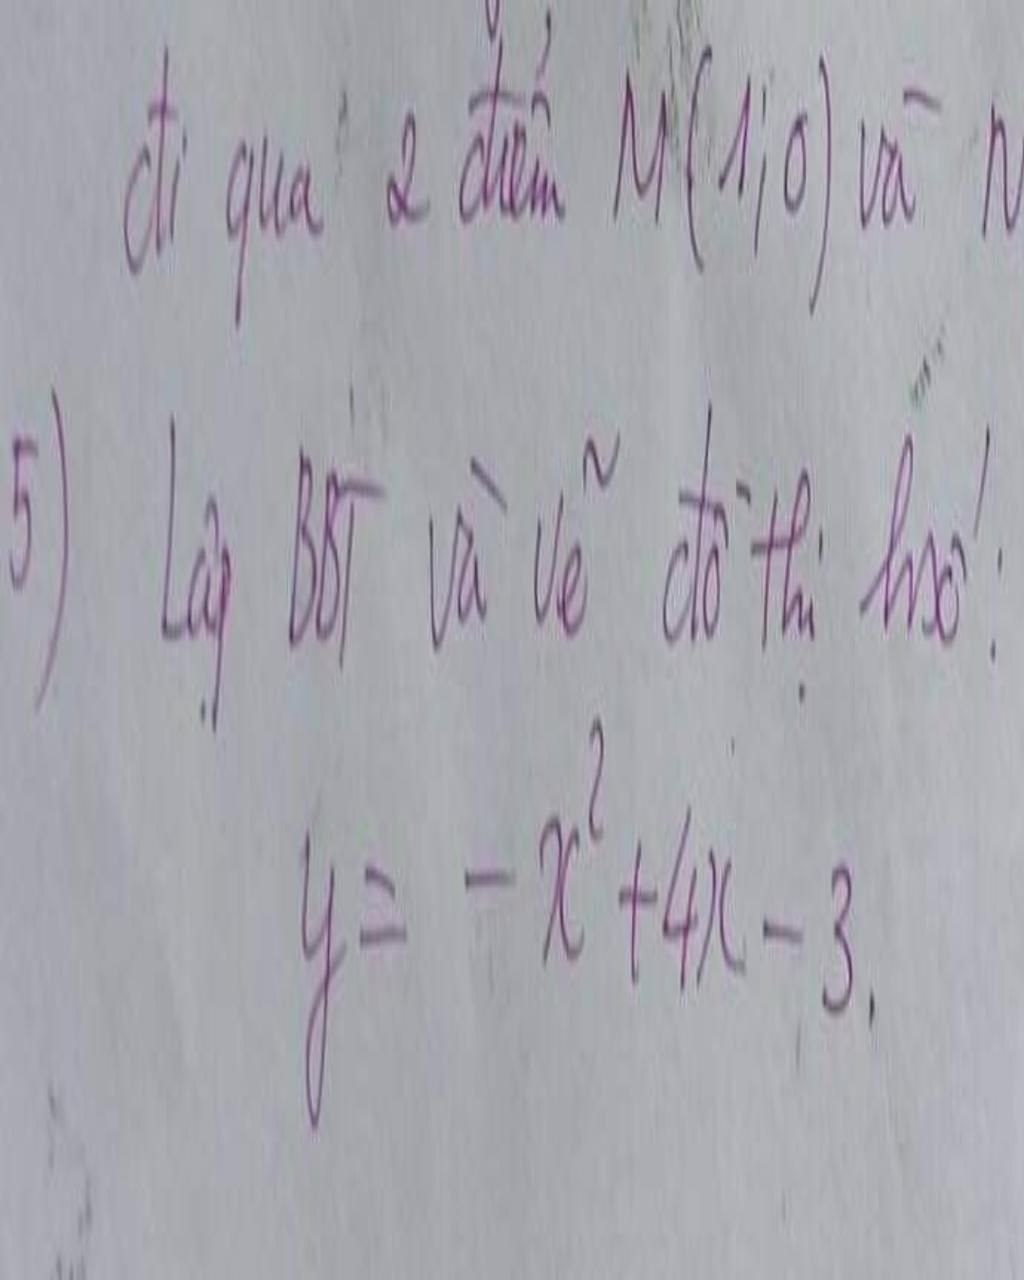 đi qua 2 điểm M(1;0) và N
5) Lập BBT và vẽ đồ thị hsố:
y = - x² + 4x - 3.